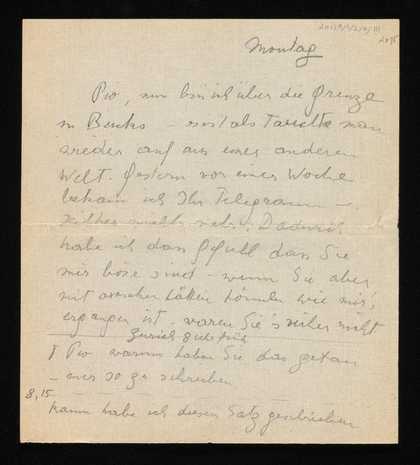 Montag
Pio, nun bin ich über die Grenze
in Buchs — es ist als tauchte man
wieder auf aus einer anderen
Welt. Gestern vor einer Woche
bekam ich Ihr Telegramm —
seither nichts mehr. Dadurch
habe ich das Gefühl dass Sie
mir böse sind — wenn Sie aber
mit ansehen hätten können wie mir's
ergangen ist, wären Sie's sicher nicht
Zürich
Pio warum haben Sie das getan
— mir so zu schreiben
8,15
kaum habe ich diesen Satz geschrieben